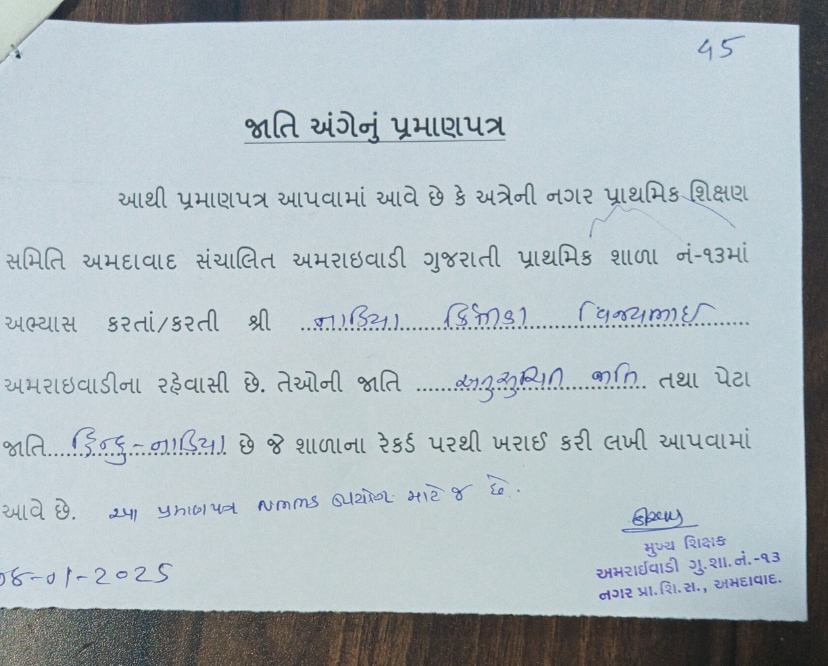 45
જાતિ અંગેનું પ્રમાણપત્ર
આથી પ્રમાણપત્ર આપવામાં આવે છે કે અત્રેની નગર પ્રાથમિક શિક્ષણ
સમિતિ અમદાવાદ સંચાલિત અમરાઇવાડી ગુજરાતી પ્રાથમિક શાળા નં-૧૩માં
અભ્યાસ કરતાં/કરતી શ્રી ...નાડિયા કિંજલ વિજયભાઈ...
અમરાઇવાડીના રહેવાસી છે. તેઓની જાતિ ......અનુસુચિત જાતિ... તથા પેટા
જાતિ.....હિન્દુ-નાડિયા છે જે શાળાના રેકર્ડ પરથી ખરાઈ કરી લખી આપવામાં
આવે છે. આ પ્રમાણપત્ર NMMS ઉપયોગ માટે જ છે.
08-01-2025
મુખ્ય શિક્ષક
અમરાઈવાડી ગુ.શા.નં.-૧૩
નગર પ્રા.શિ.સ., અમદાવાદ.